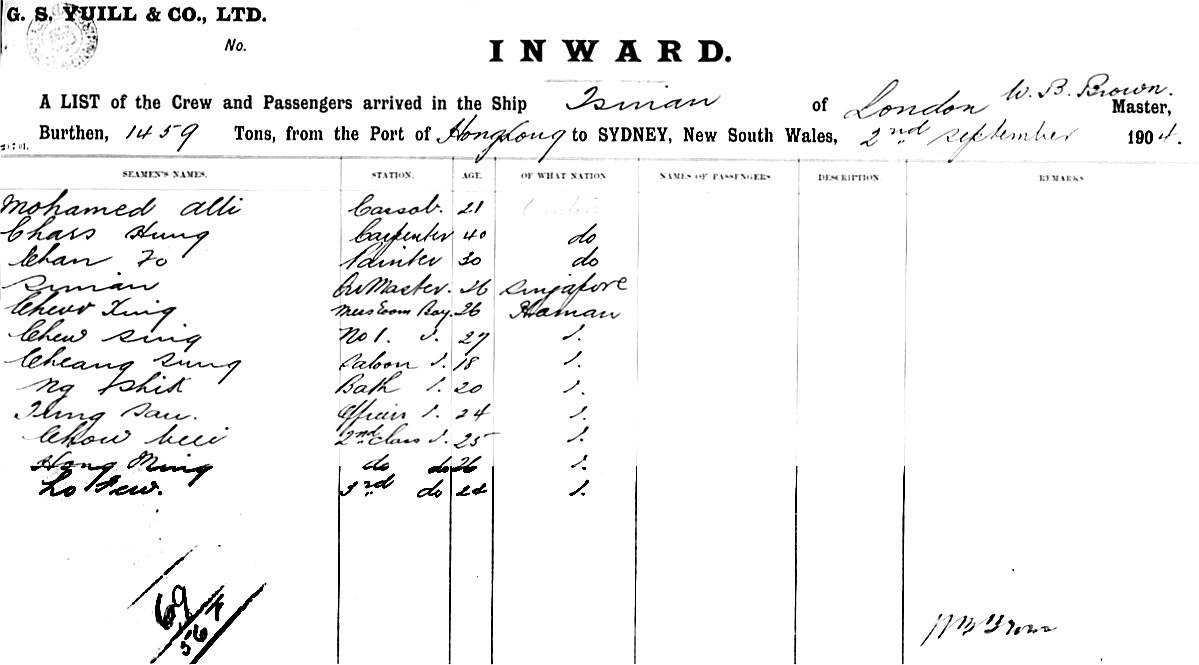 G. S. YUILL & CO., LTD.
No.
INWARD.
A LIST of the Crew and Passengers arrived in the Ship Tsinan of London W. B. Brown. Master,
Burthen, 1459 Tons, from the Port of Hong Kong to SYDNEY, New South Wales, 2nd September 1904.
SEAMEN'S NAMES. STATION. AGE. OF WHAT NATION NAMES OF PASSENGERS DESCRIPTION. REMARKS
Mohamed Alli Cassab. 21
Chass Hung Carpenter 40 do
Chan Fo Painter 30 do
Sinian Qr Master. 26 Singapore
Chew King Messroom Boy. 26 Hainan
Chew Sing No 1. 27
Cheang Sung Saloon 18
Ng Bath 20
Officers 24
Chow 2nd Class 25
Hong Ming do do 26
Lo 3rd do 24
69
56
W B Brown